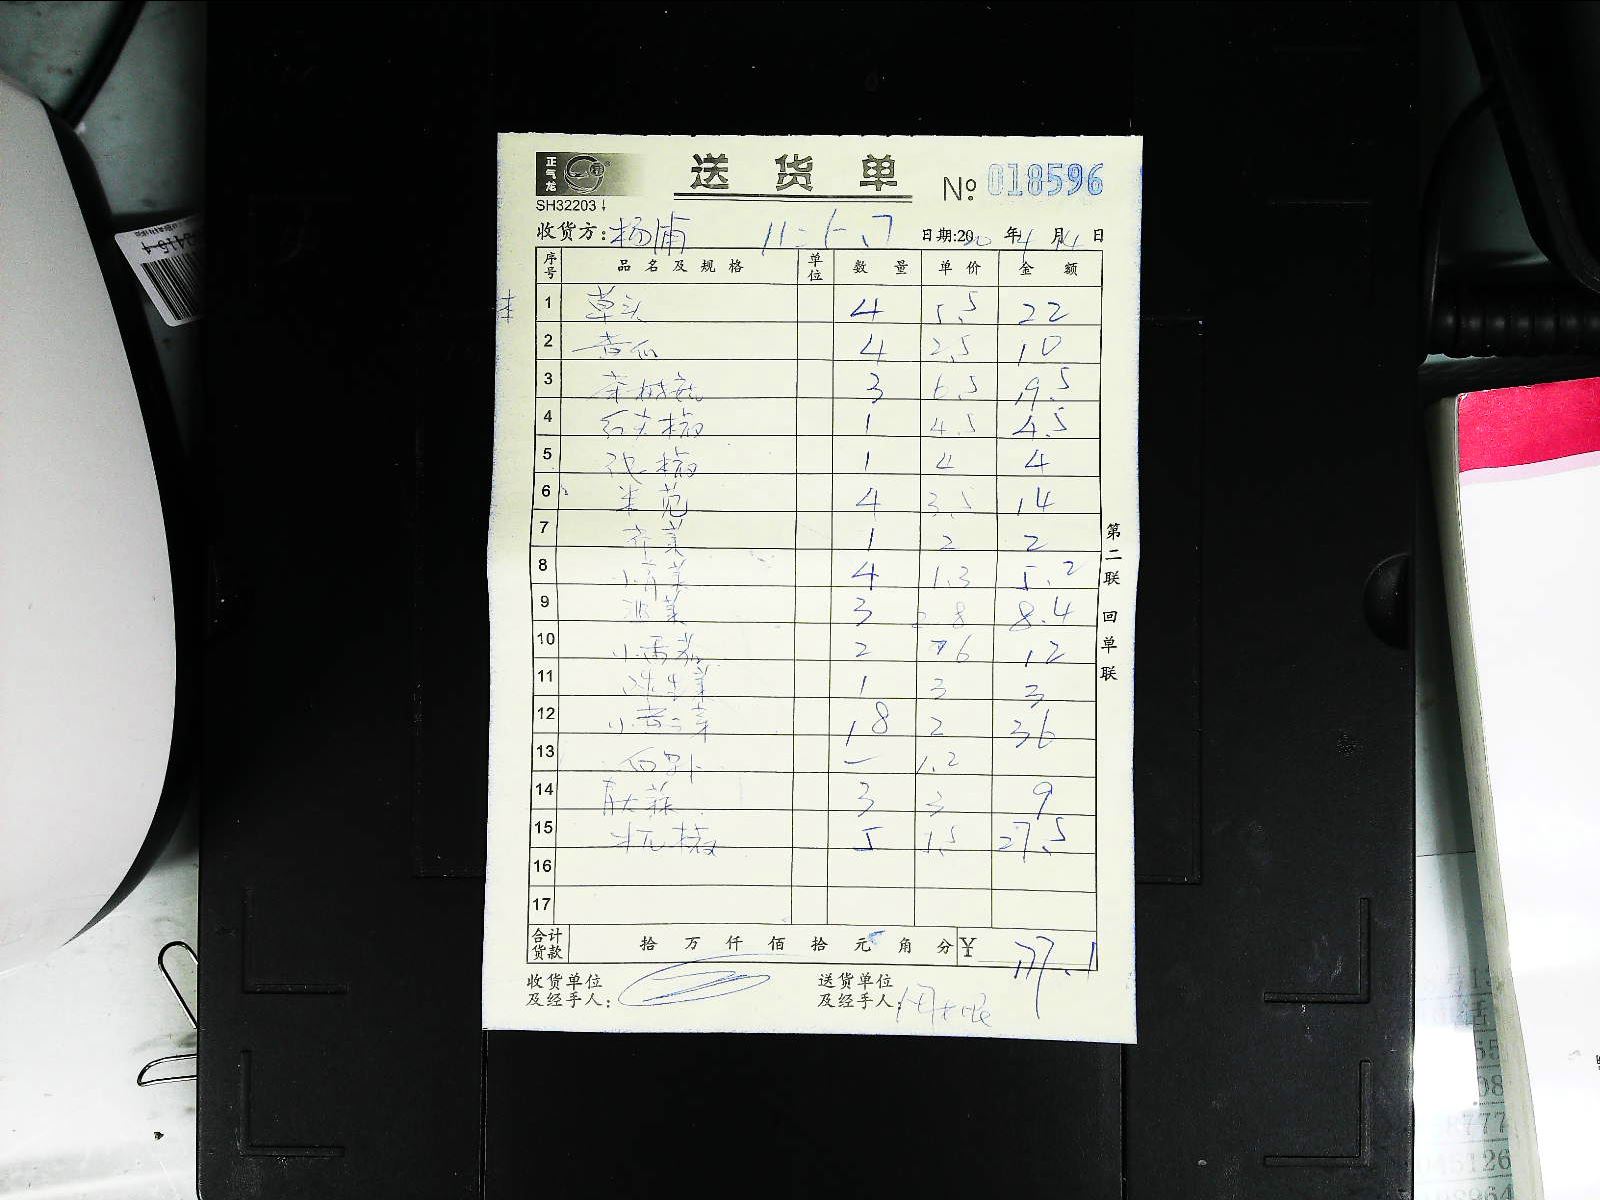 正气龙
送货单
№ 018596
SH32203
收货方: 杨浦 日期:2020年4月14日
序号 品名及规格 单位 数量 单价 金额
1 草头 4 5.5 22
2 黄瓜 4 2.5 10
3 茶树菇 3 6.5 19.5
4 红尖椒 1 4.5 4.5
5 1 4 4
6 米苋 4 3.5 14
7 荠菜 1 2 2
8 小青菜 4 1.3 5.2
9 菠菜 3 2.8 8.4
10 小番茄 2 6 12
11 球生菜 1 3 3
12 18 2 36
13 白萝卜 — 1.2
14 3 3 9
15 杭椒 5 5.5 27.5
16
17
合计货款 拾 万 仟 佰 拾 元 角 分 ¥ 177.1
收货单位及经手人:
送货单位及经手人:
第二联 回单联